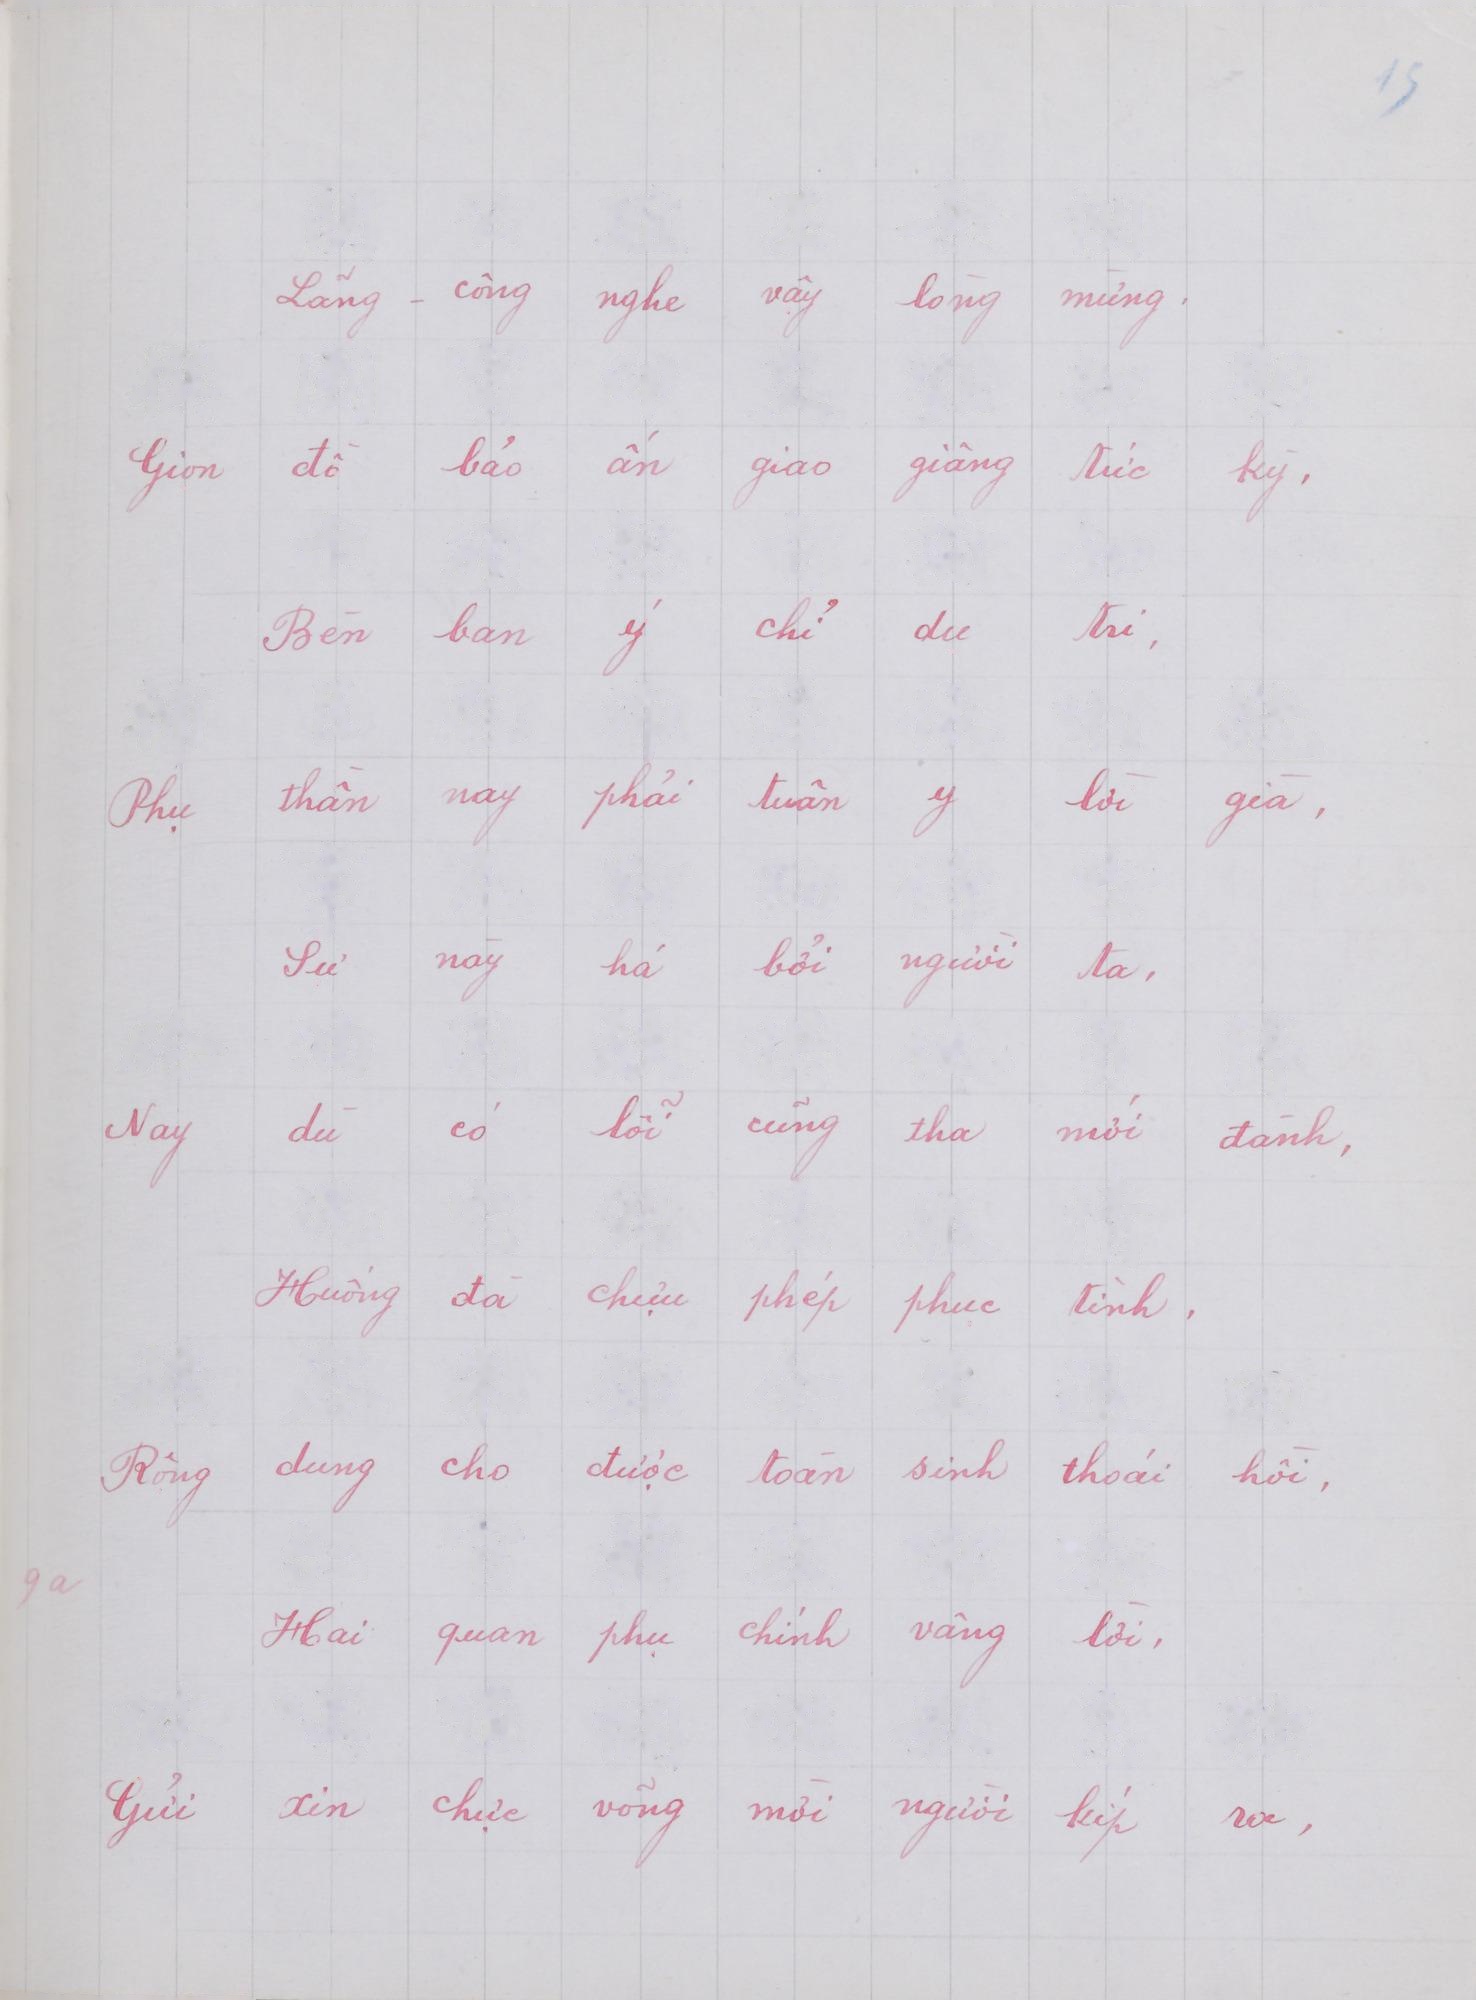 15
Lãng - công nghe vậy lòng mừng.
Gion đồ bảo ấn giao giâng tức kỳ,
Bèn ban ý chỉ du tri,
Phụ thần nay phải tuân y lời già,
Sư này há bởi người ta,
Nay dù có lỗi cũng tha mới đành,
Huống đà chựu phép phục tình,
Rộng dung cho được toàn sinh thoái hồi,
9a
Hai quan phụ chính vâng lời,
Gửi xin chực võng mời người kíp ra,